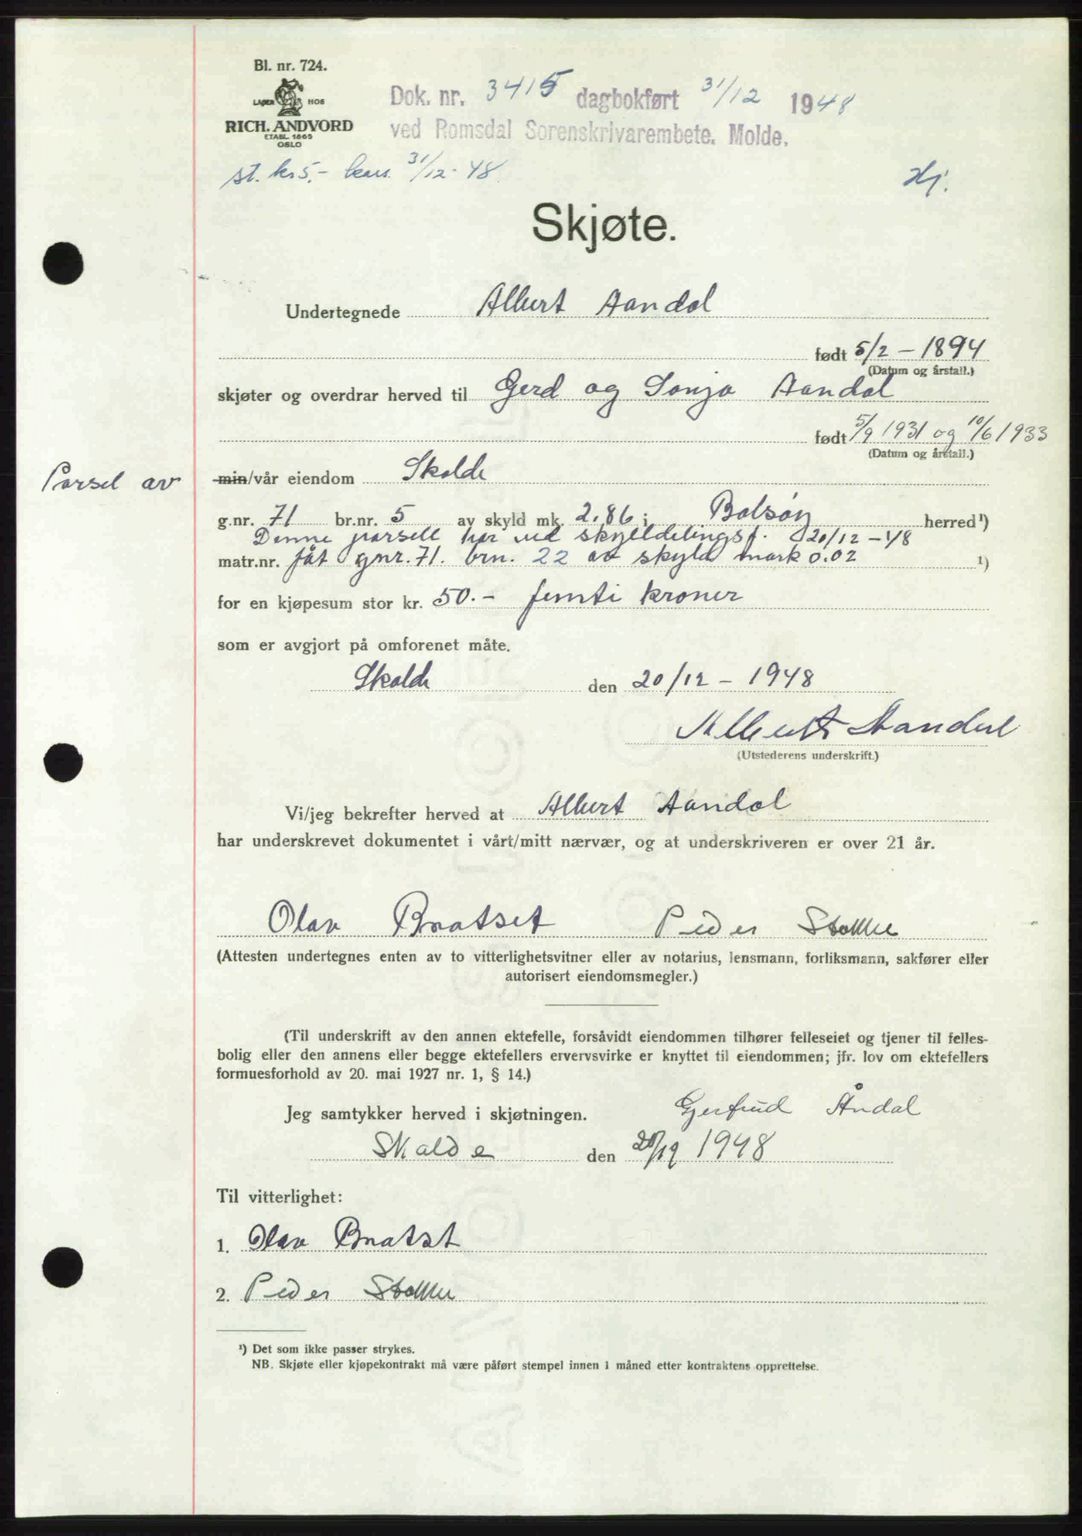 Bl. nr. 724.
LAGER HOS
RICH. ANDVORD
ETABL. 1865
OSLO
Dok. nr. 3415 dagbokført 31/12 1948
ved Romsdal Sorenskrivarembete. Molde.
st. kr 5.- kass. 31/12-48.
Skjøte.
Undertegnede Albert Aandal
født 5/2 - 1894
(Datum og årstall.)
skjøter og overdrar herved til Gerd og Sonja Aandal
født 5/9 1931 og 10/6 1933
(Datum og årstall.)
Parsel av min/vår eiendom Skalde
g.nr. 71 br.nr. 5 av skyld mk. 2,86 i Bolsøy herred ¹)
Denne parsell har ved skylddelingsf. 20/12-48
matr.nr. fåt gnr. 71. brn. 22 av skyld mark 0.02 ¹)
for en kjøpesum stor kr. 50.- femti kroner
som er avgjort på omforenet måte.
Skalde den 20/12 - 1948
Albert Aandal
(Utstederens underskrift.)
Vi/jeg bekrefter herved at Albert Aandal
har underskrevet dokumentet i vårt/mitt nærvær, og at underskriveren er over 21 år.
Olav Bratset Peder Stokke
(Attesten undertegnes enten av to vitterlighetsvitner eller av notarius, lensmann, forliksmann, sakfører eller
autorisert eiendomsmegler.)
(Til underskrift av den annen ektefelle, forsåvidt eiendommen tilhører felleseiet og tjener til felles-
bolig eller den annens eller begge ektefellers ervervsvirke er knyttet til eiendommen; jfr. lov om ektefellers
formuesforhold av 20. mai 1927 nr. 1, § 14.)
Jeg samtykker herved i skjøtningen. Gjertrud Åndal
Skalde den 20/12 1948
Til vitterlighet:
1. Olav Bratset
2. Peder Stokke
¹) Det som ikke passer strykes.
NB. Skjøte eller kjøpekontrakt må være påført stempel innen 1 måned etter kontraktens opprettelse.